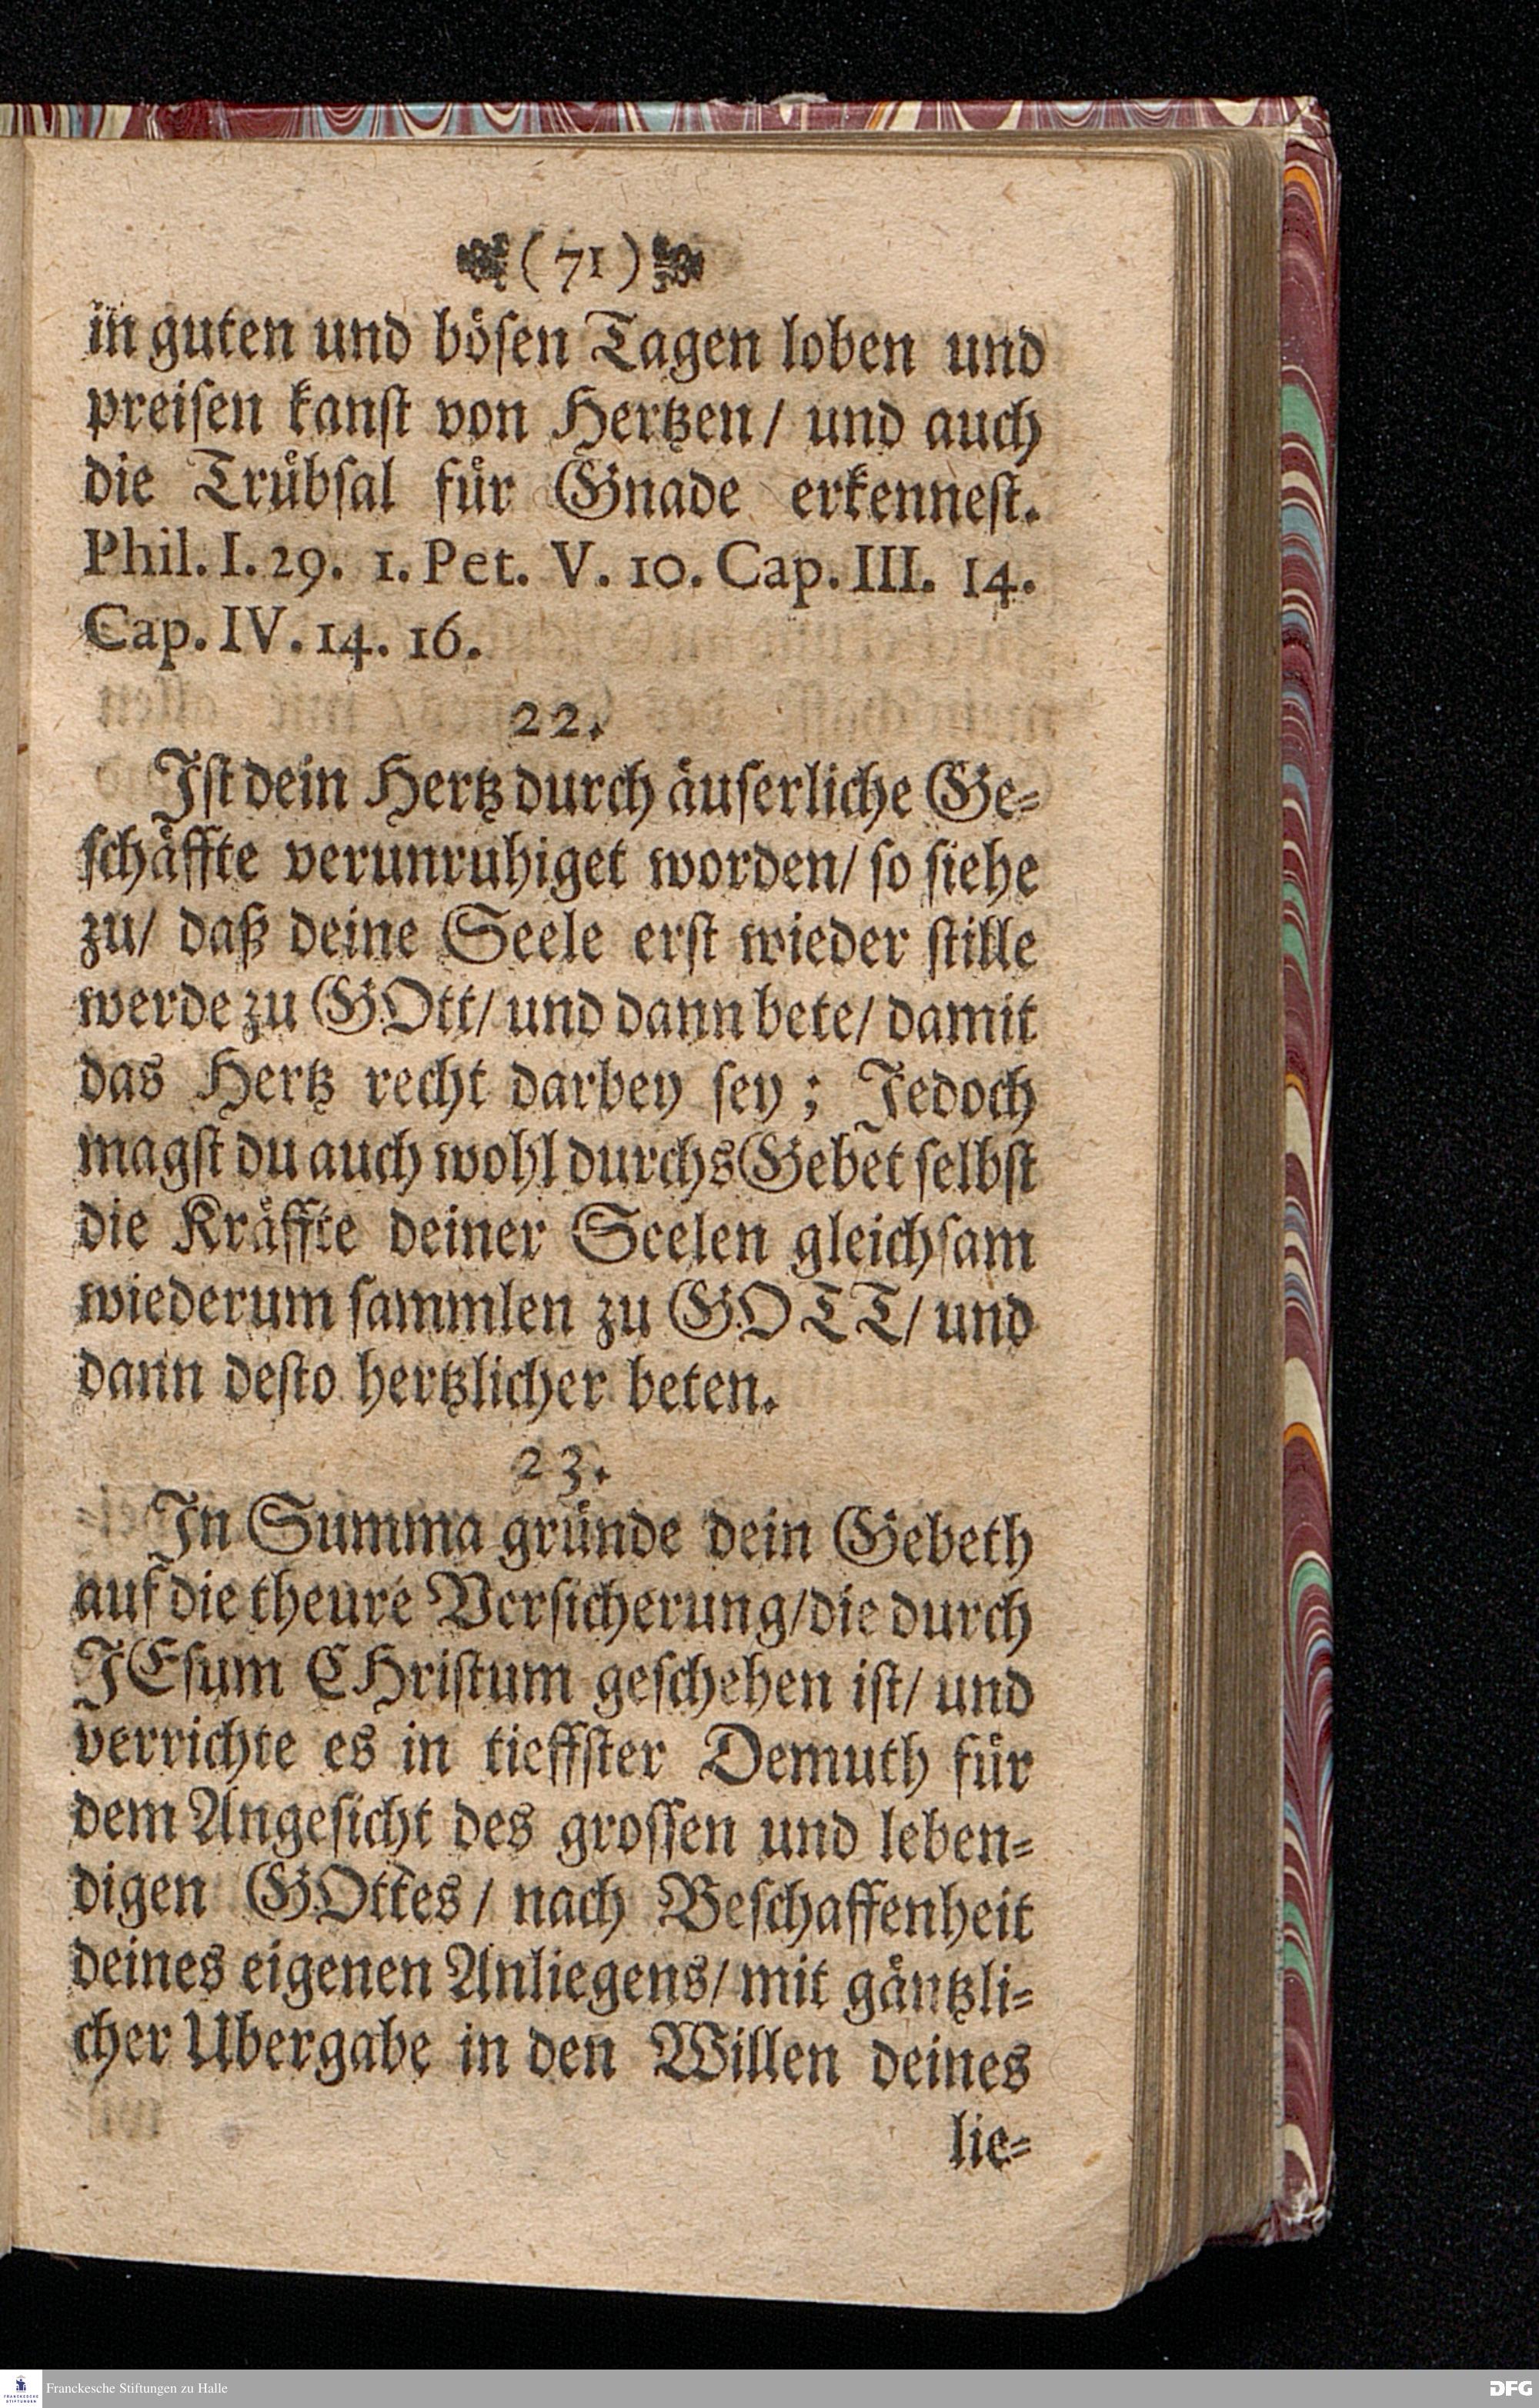 (71)
in guten und bösen Tagen loben und
preisen kanst von Hertzen/ und auch
die Trübsal für Gnade erkennest.
Phil. I. 29. 1. Pet. V. 10. Cap. III. 14.
Cap. IV. 14. 16.
22.
Ist dein Hertz durch äuserliche Ge-
schäffte verunruhiget worden/ so siehe
zu/ daß deine Seele erst wieder stille
werde zu GOtt/ und dann bete/ damit
das Hertz recht darbey sey; Jedoch
magst du auch wohl durchs Gebet selbst
die Kräffte deiner Seelen gleichsam
wiederum sammlen zu GOTT/ und
dann desto hertzlicher beten.
23.
In Summa gründe dein Gebeth
auf die theure Versicherung/ die durch
JEsum CHristum geschehen ist/ und
verrichte es in tieffster Demuth für
dem Angesicht des grossen und leben-
digen GOttes/ nach Beschaffenheit
deines eigenen Anliegens/ mit gäntzli-
cher Ubergabe in den Willen deines
lie-
FRANCKESCHE STIFTUNGEN
Franckesche Stiftungen zu Halle
DFG